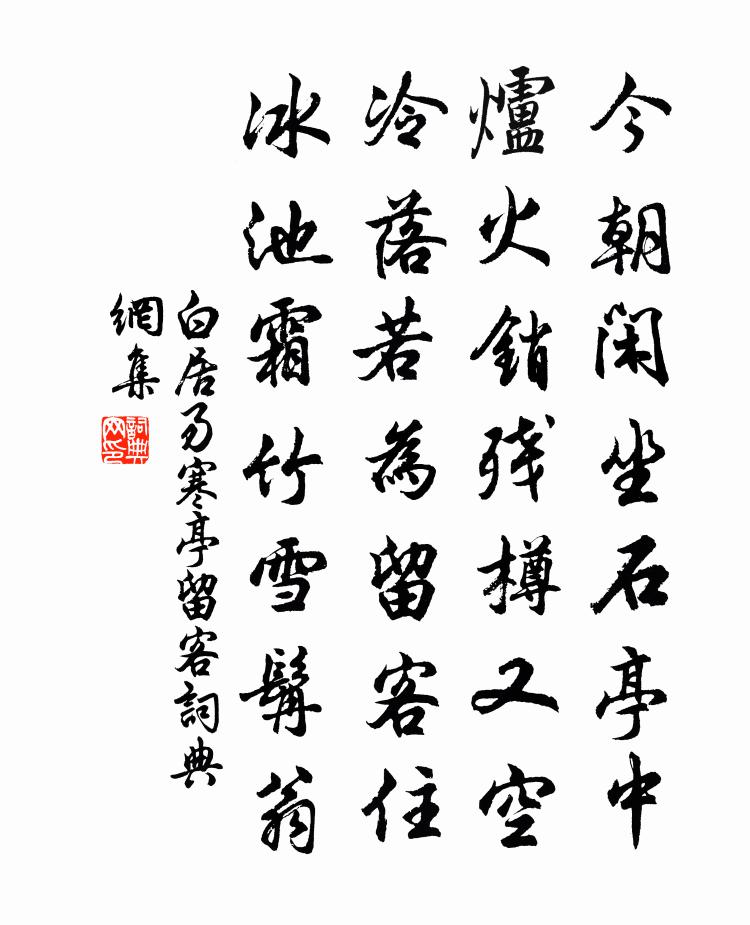 今朝閑坐石亭中
爐火銷殘樽又空
冷落若為留客住
冰池霜竹雪髯翁
白居易寒亭留客詞典
網集
詞典網印